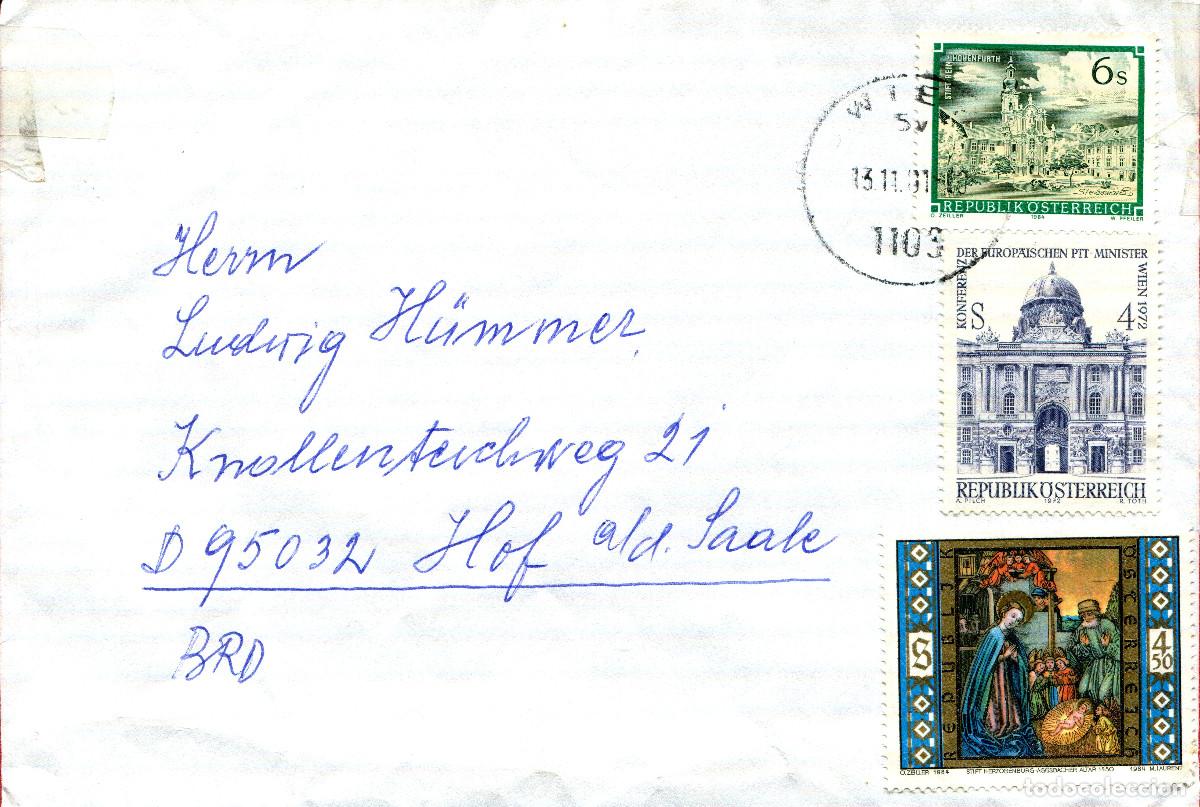 STIFT REIN HOHENFURTH
6 S
REPUBLIK ÖSTERREICH
O. ZEILLER 1984 W. PFEILER
WIE
13.11.01
1103
KONFERENZ DER EUROPÄISCHEN PTT MINISTER WIEN 1972
S 4
REPUBLIK ÖSTERREICH
A. PILCH 1972 R. TOTH
Herrn
Ludwig Hümmer
Knollenteichweg 21
D 95032 Hof a/d. Saale
BRD
REPUBLIK ÖSTERREICH
S 4 50
O. ZEILLER 1984 STIFT HERZOGENBURG AGGSBACHER ALTAR 1450 1984 M. LAURENT
todocoleccion